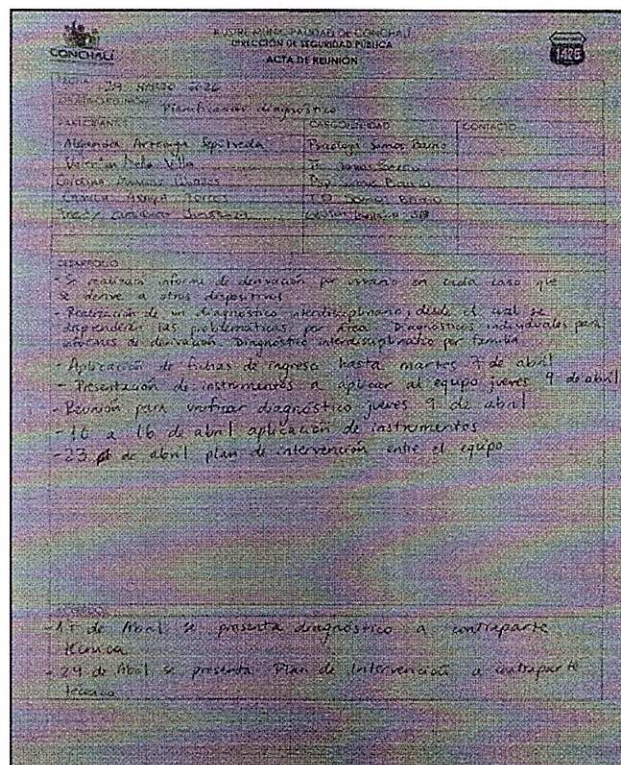 CONCHALÍ
ILUSTRE MUNICIPALIDAD DE CONCHALÍ
DIRECCIÓN DE SEGURIDAD PÚBLICA
ACTA DE REUNIÓN
1426
29
Planificación diagnóstico
PARTICIPANTES CARGO/UNIDAD CONTACTO
- Alejandra Arteaga Sepúlveda Psicóloga Somos Barrio
Valentina Villa Somos Barrio
Carolina Somos Barrio
Camila Torres T.O Somos Barrio
DESARROLLO
- Se realizará informe de derivación por usuario en cada caso que
se derive a otros dispositivos
- Realización de un diagnóstico interdisciplinario, desde el cual se
desprenderán las problemáticas por área. Diagnósticos individuales para
informes de derivación. Diagnóstico interdisciplinario por familia
- Aplicación de fichas de ingreso hasta martes 7 de abril
- Presentación de instrumentos a aplicar al equipo jueves 9 de abril
- Reunión para unificar diagnóstico jueves 9 de abril
- 10 a 16 de abril aplicación de instrumentos
- 23 de abril plan de intervención entre el equipo
- 17 de Abril se presenta diagnóstico a contraparte
técnica
- 29 de Abril se presenta Plan de Intervención a contraparte
técnica